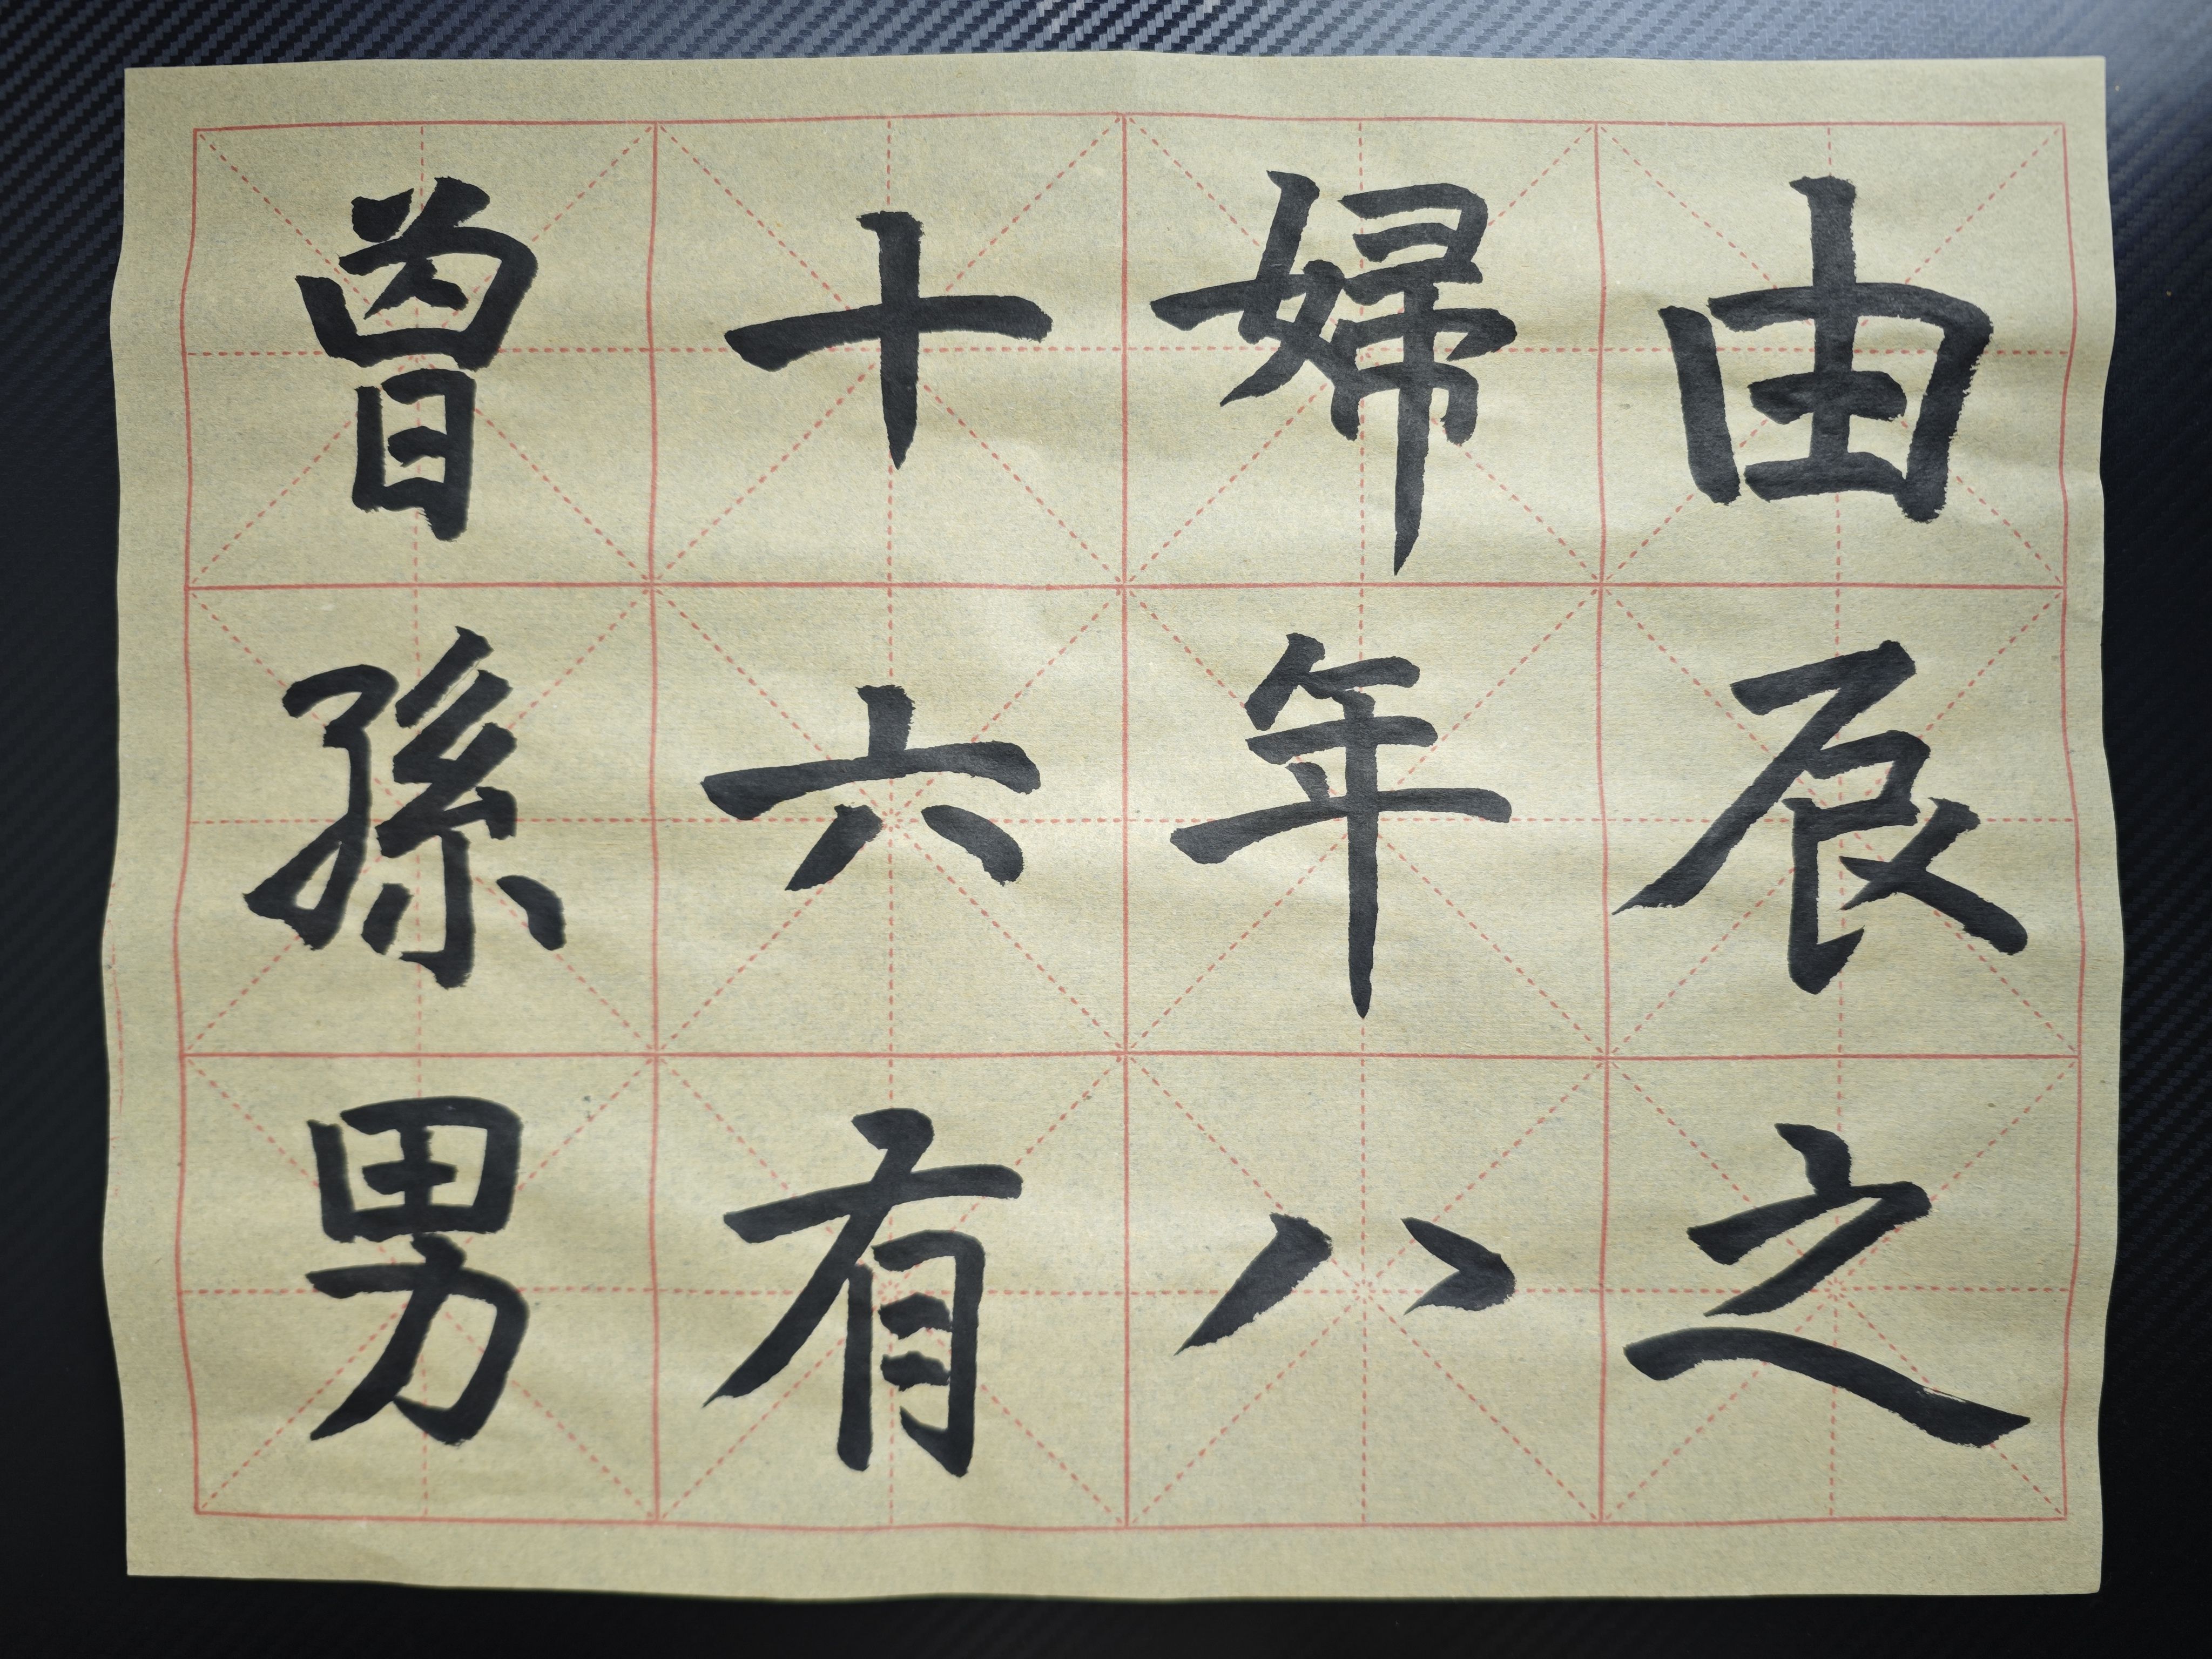 由辰之
婦年八
十六有
曾孫男